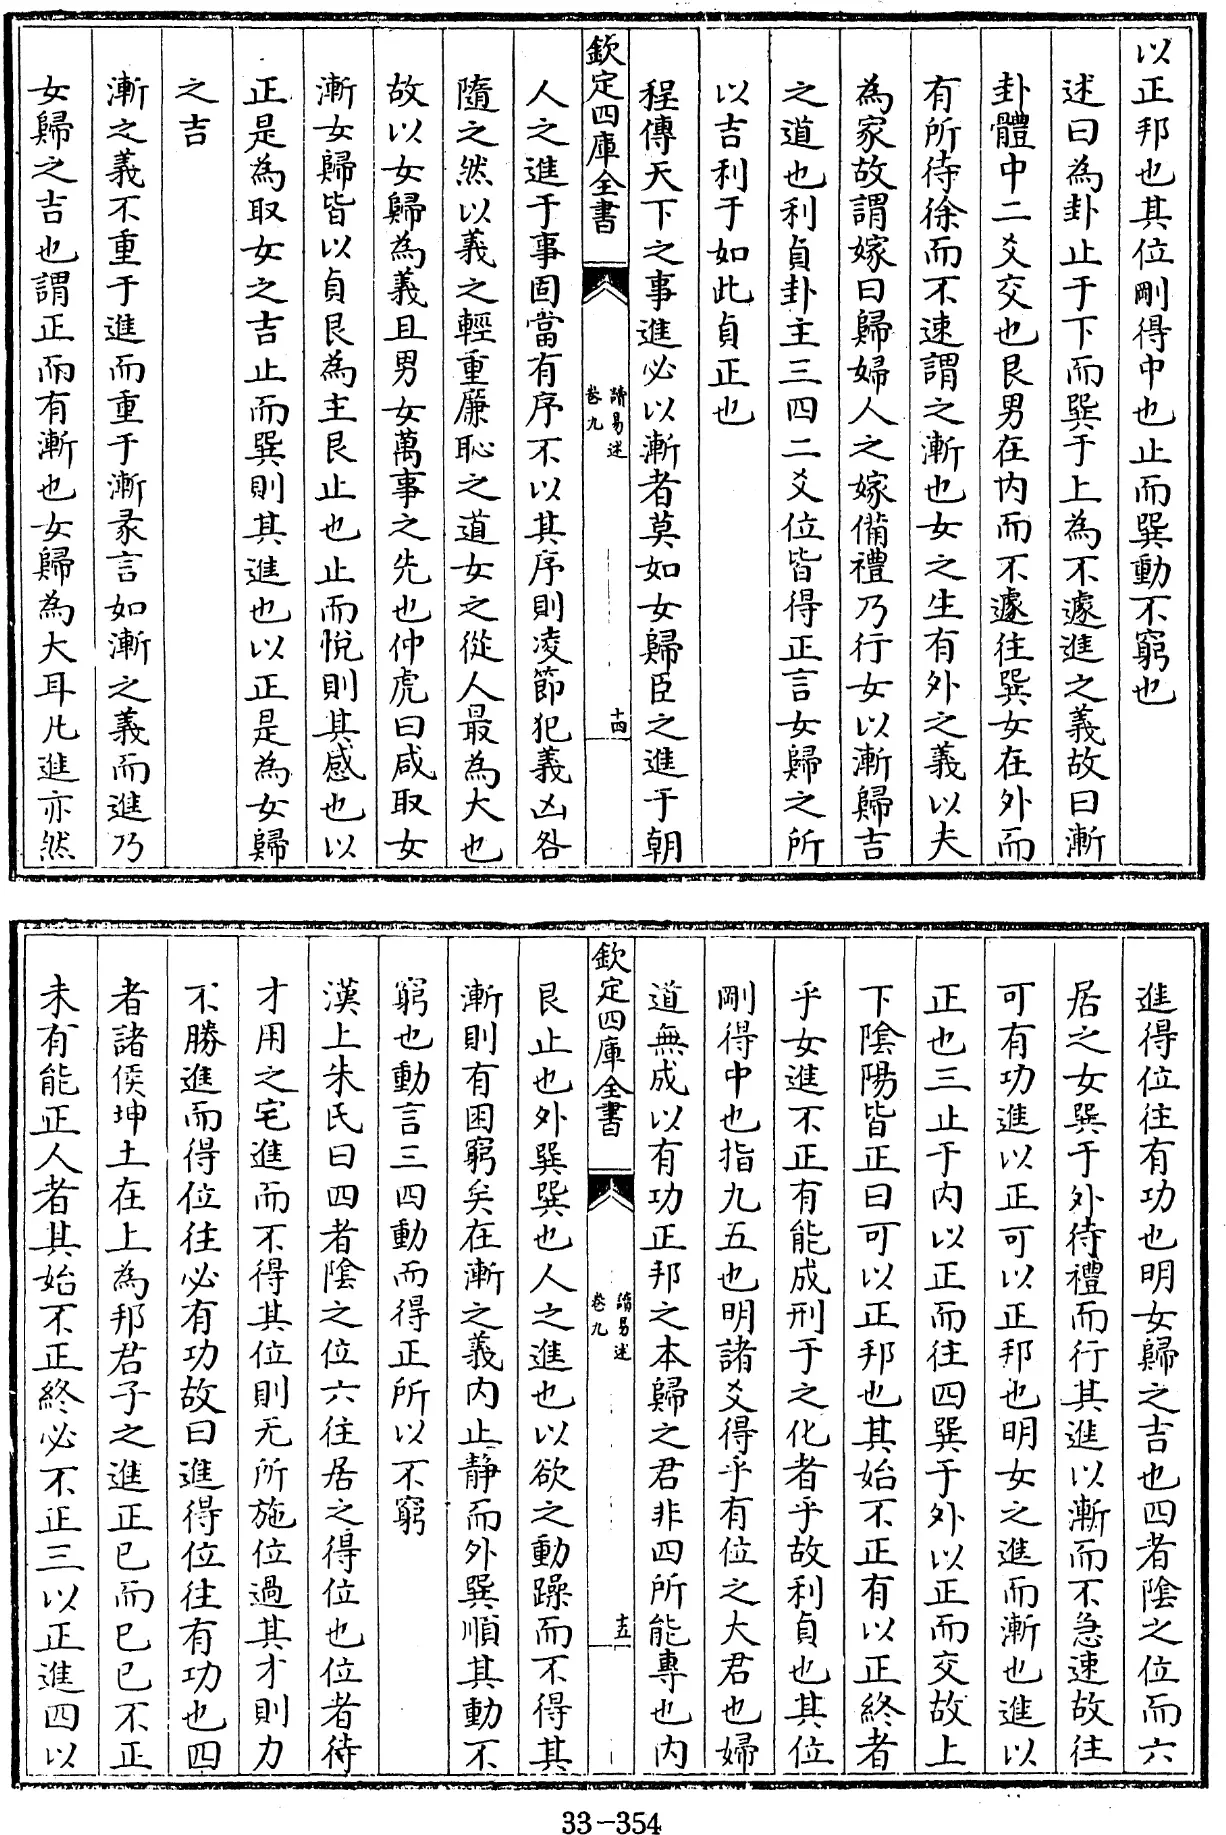 以正邦也其位剛得中也止而巽動不窮也
述曰為卦止于下而巽于上為不遽進之義故曰漸
卦體中二爻交也艮男在内而不遽往巽女在外而
有所待徐而不速謂之漸也女之生有外之義以夫
為家故謂嫁曰歸婦人之嫁備禮乃行女以漸歸吉
之道也利貞卦主三四二爻位皆得正言女歸之所
以吉利于如此貞正也
程傳天下之事進必以漸者莫如女歸臣之進于朝
欽定四庫全書
讀易述
卷九
十四
人之進于事固當有序不以其序則凌節犯義凶咎
隨之然以義之輕重廉恥之道女之從人最為大也
故以女歸為義且男女萬事之先也仲虎曰咸取女
漸女歸皆以貞艮為主艮止也止而悅則其感也以
正是為取女之吉止而巽則其進也以正是為女歸
之吉
漸之義不重于進而重于漸彖言如漸之義而進乃
女歸之吉也謂正而有漸也女歸為大耳凡進亦然
進得位往有功也明女歸之吉也四者陰之位而六
居之女巽于外待禮而行其進以漸而不急速故往
可有功進以正可以正邦也明女之進而漸也進以
正也三止于内以正而往四巽于外以正而交故上
下陰陽皆正曰可以正邦也其始不正有以正終者
乎女進不正有能成刑于之化者乎故利貞也其位
剛得中也指九五也明諸爻得乎有位之大君也婦
道無成以有功正邦之本歸之君非四所能專也内
欽定四庫全書
讀易述
卷九
十五
艮止也外巽巽也人之進也以欲之動躁而不得其
漸則有困窮矣在漸之義内止靜而外巽順其動不
窮也動言三四動而得正所以不窮
漢上朱氏曰四者陰之位六往居之得位也位者待
才用之宅進而不得其位則无所施位過其才則力
不勝進而得位往必有功故曰進得位往有功也四
者諸侯坤土在上為邦君子之進正已而已已不正
未有能正人者其始不正終必不正三以正進四以
33-354